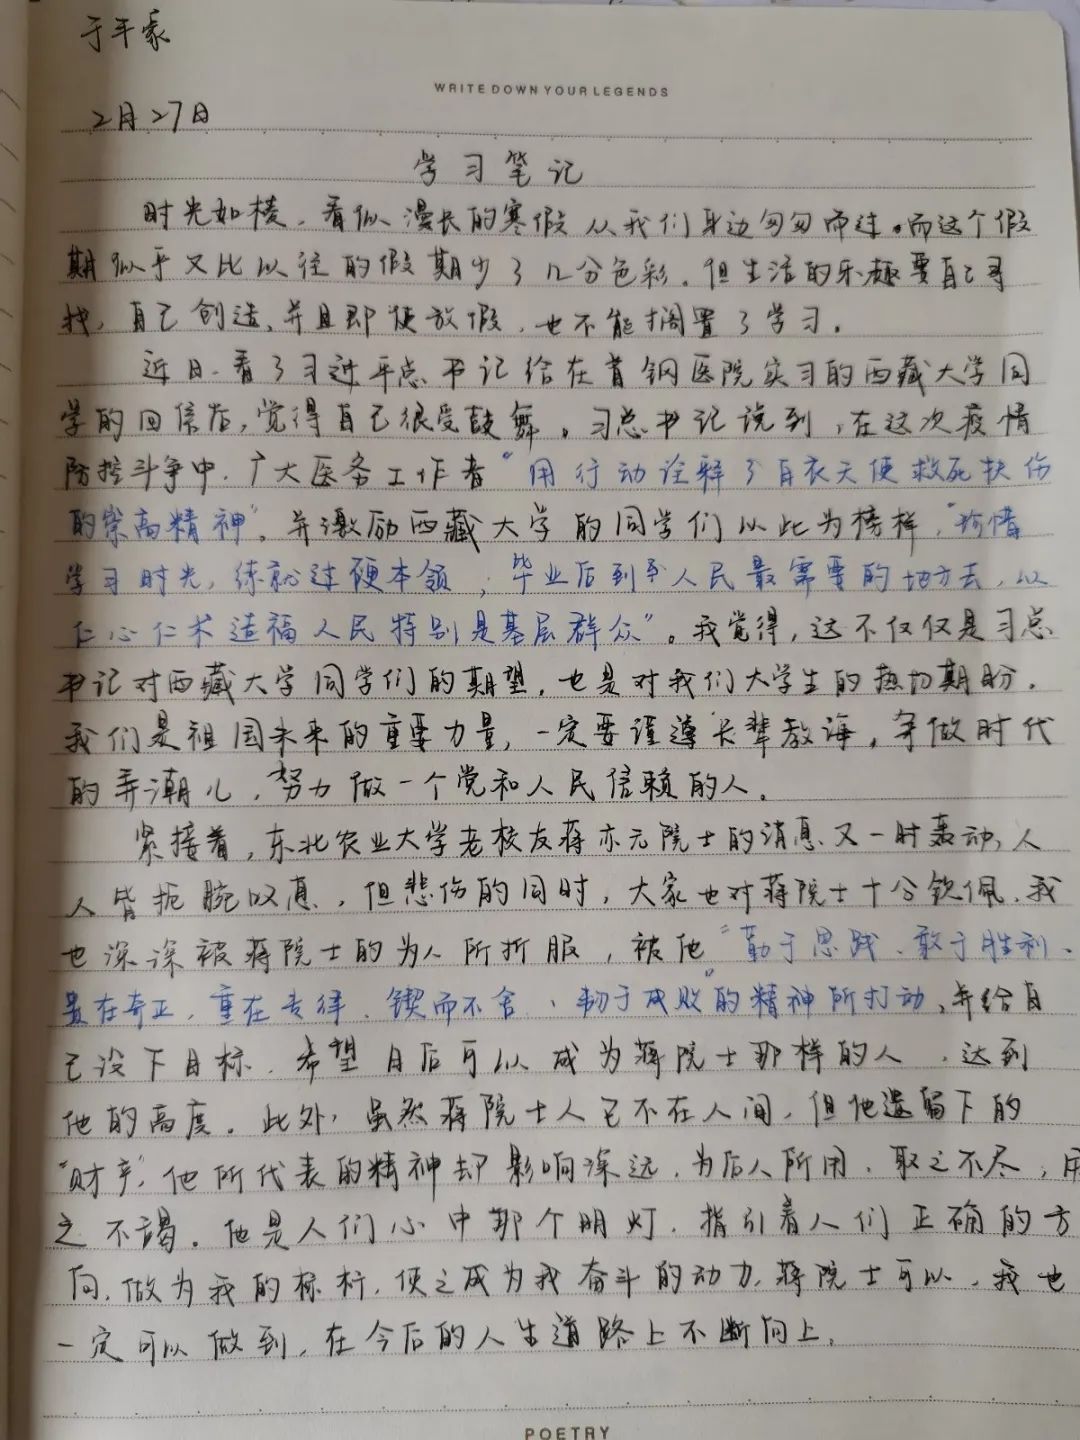 于平豪
WRITE DOWN YOUR LEGENDS
2月27日
学习笔记
时光如梭，看似漫长的寒假从我们身边匆匆而过。而这个假
期似乎又比以往的假期少了几分色彩。但生活的乐趣要自己寻
找，自己创造，并且即使放假，也不能搁置了学习。
近日，看了习近平总书记给在首钢医院实习的西藏大学同
学的回信后，觉得自己很受鼓舞。习总书记说到，在这次疫情
防控斗争中，广大医务工作者“用行动诠释了白衣天使救死扶伤
的崇高精神”。并激励西藏大学的同学们以此为榜样，“珍惜
学习时光，练就过硬本领，毕业后到到人民最需要的地方去，以
仁心仁术造福人民特别是基层群众”。我觉得，这不仅仅是习总
书记对西藏大学同学们的期望，也是对我们大学生的热切期盼。
我们是祖国未来的重要力量，一定要谨遵长辈教诲，争做时代
的弄潮儿，努力做一个党和人民信赖的人。
紧接着，东北农业大学老校友蒋亦元院士的消息又一时轰动，人
人皆扼腕叹息，但悲伤的同时，大家也对蒋院士十分钦佩，我
也深深被蒋院士的为人所折服，被他“勤于思践、敢于胜利、
贵在奇正、重在专律、锲而不舍、韧于成败”的精神所打动，并给自
己设下目标，希望日后可以成为蒋院士那样的人，达到
他的高度。此外，虽然蒋院士人已不在人间，但他遗留下的
“财产”，他所代表的精神却影响深远，为后人所用，取之不尽，用
之不竭。他是人们心中那个明灯，指引着人们正确的方
向，做为我的标杆，使之成为我奋斗的动力，蒋院士可以，我也
一定可以做到，在今后的人生道路上不断向上。
POETRY